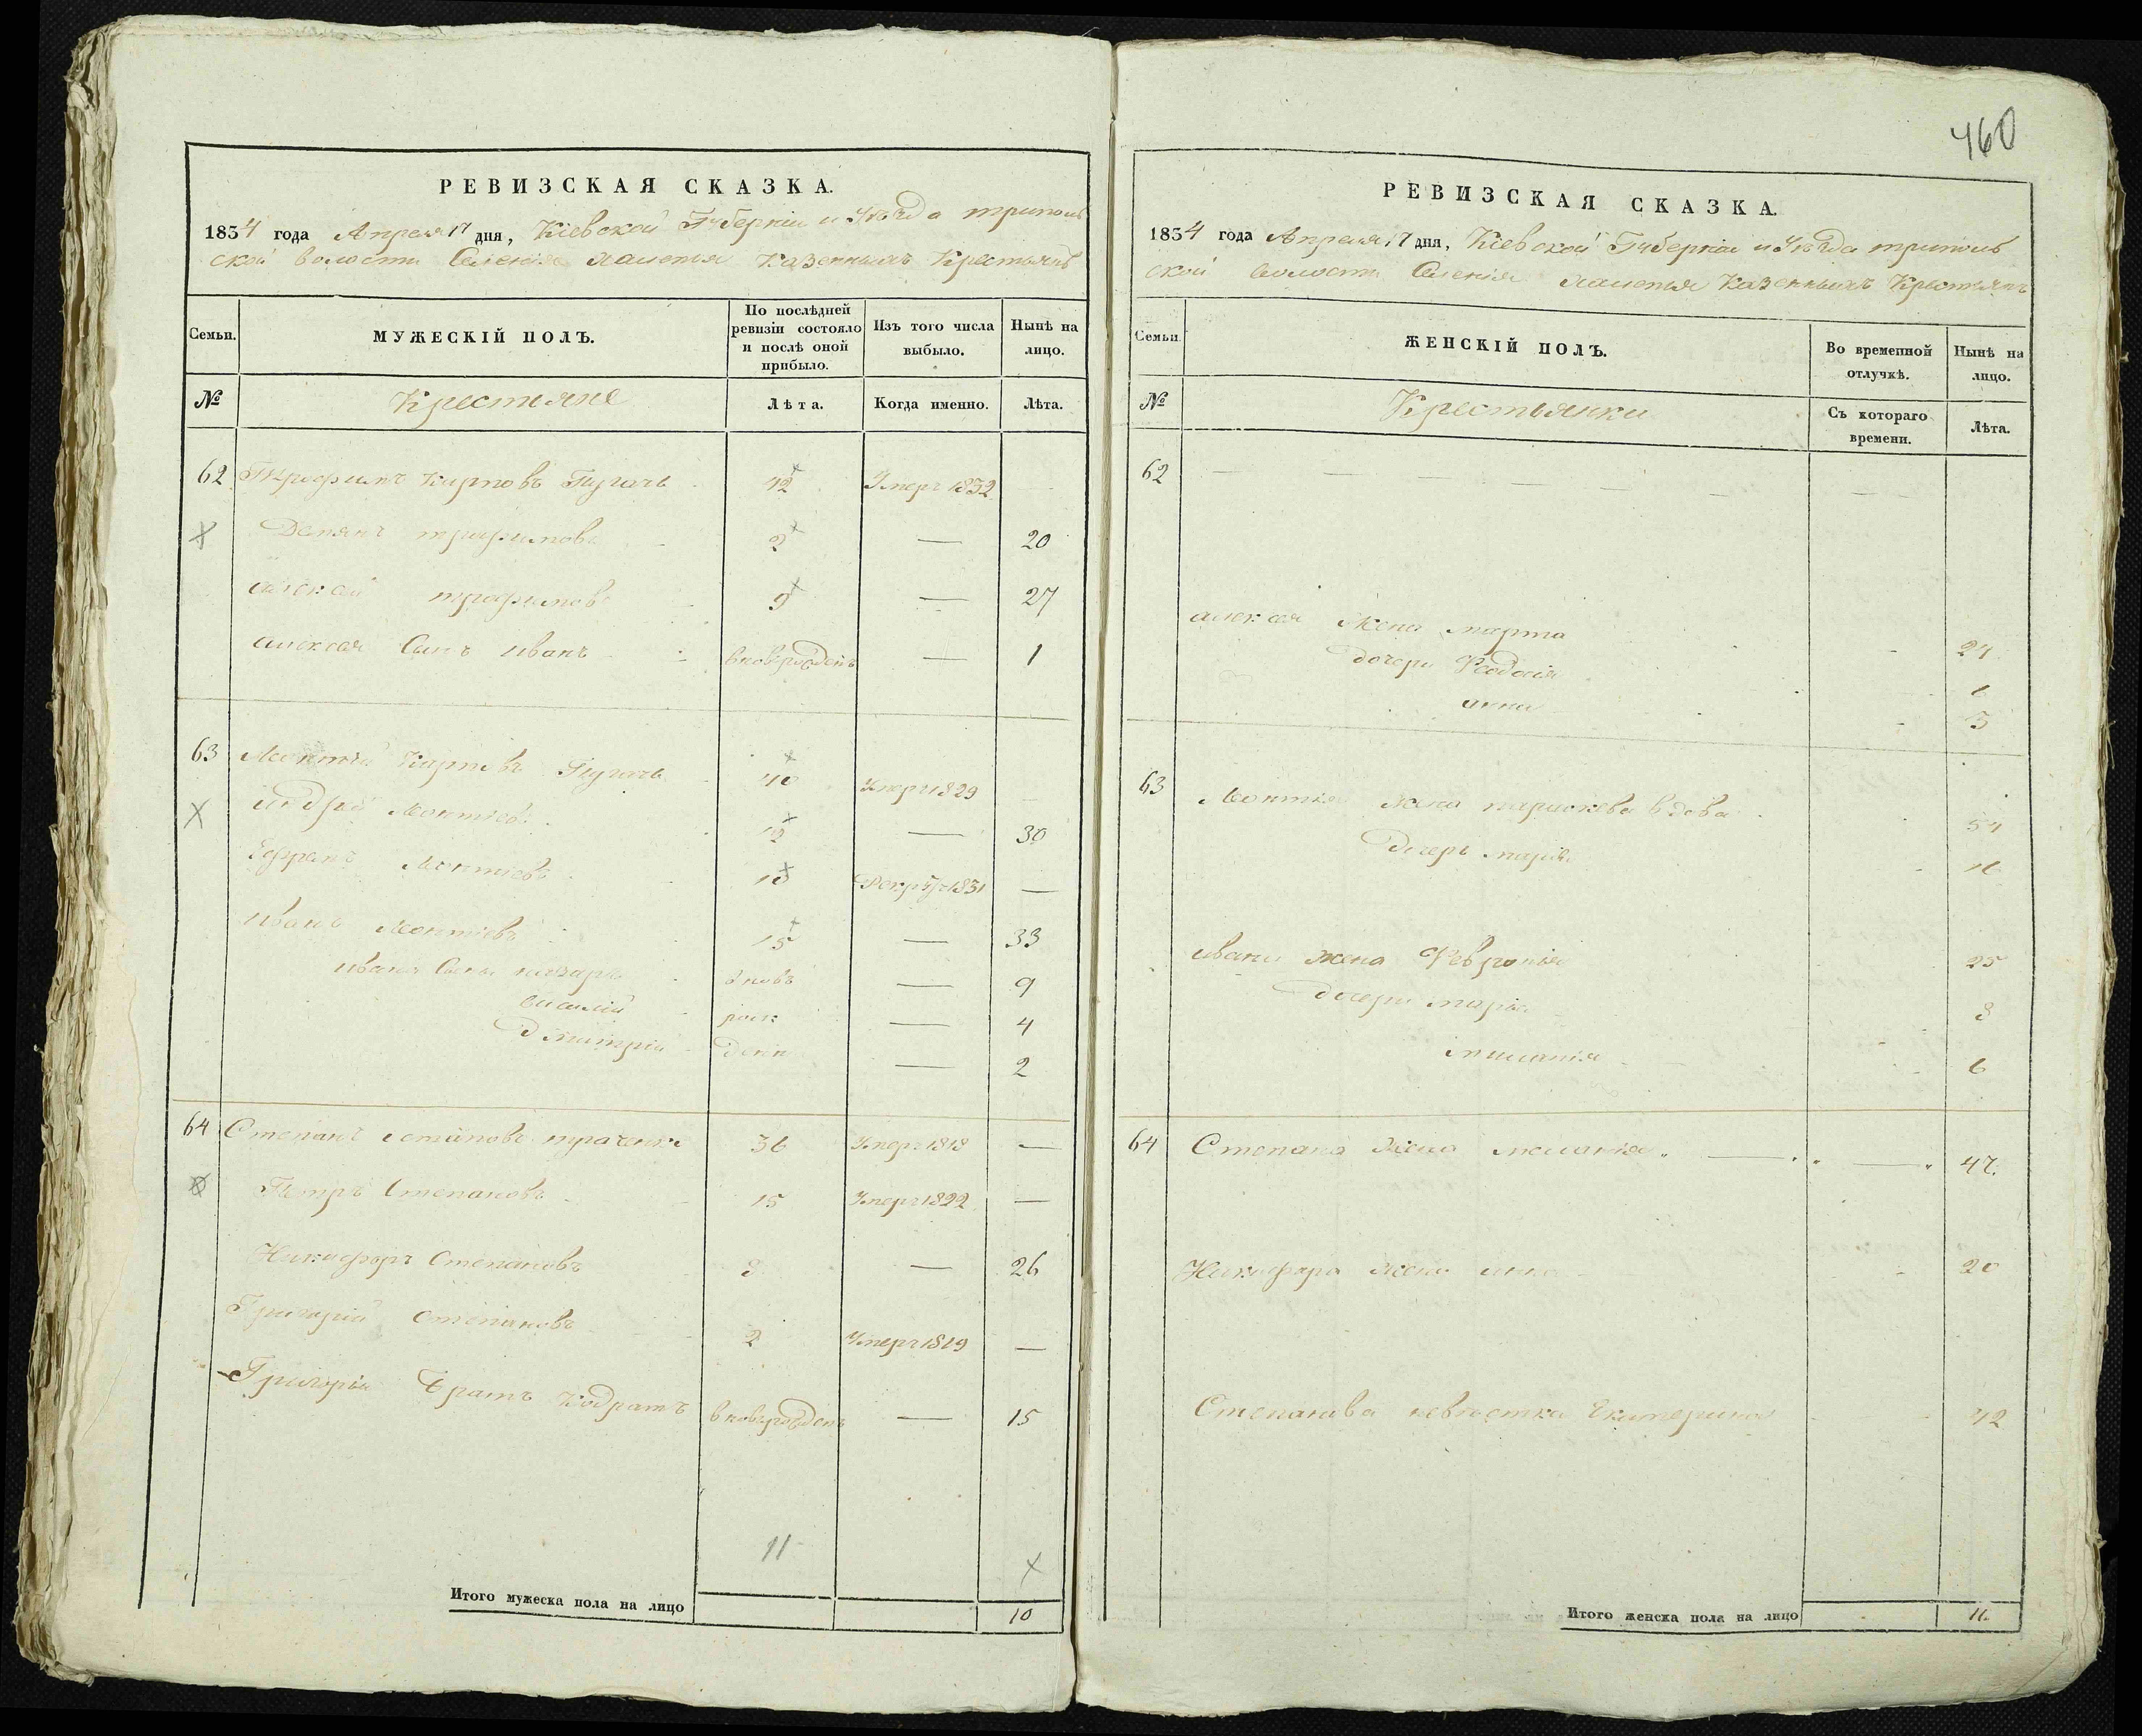 460
РЕВИЗСКАЯ СКАЗКА.
1834 года Апреля 17 дня, Кіевской Губерніи и Уѣзда триполь
ской волости Селенія Халепья Казенныхъ Крестьянъ
Семьи.
МУЖЕСКІЙ ПОЛЪ.
По послѣдней ревизіи состояло и послѣ оной прибыло.
Изъ того числа выбыло.
Нынѣ на лицо.
№
Крестьяне
Лѣта.
Когда именно.
Лѣта.
62 Трофимъ Карповъ Пугачь 42 Умеръ 1832
Демянъ трофимовъ 2 — 20
алексей трофимовъ 9 — 27
алексея Сынъ иванъ вновьрожденъ — 1
63 Леонтій Карповъ Пугачь 40 Умеръ 1829
андрей Леонтіевъ 12 — 30
Ефремъ Леонтіевъ 10 Рекрут 1831 —
иванъ Леонтіевъ 15 — 33
ивана Сыны назаръ вновь — 9
василій рож — 4
Дмитрій дени — 2
64 Степанъ остаповъ пугаченко 36 Умеръ 1818 —
Петръ Степановъ 15 Умеръ 1822 —
Никифоръ Степановъ 8 — 26
Григорій Степановъ 2 Умеръ 1819 —
Григорія братъ Кодратъ вновьрожденъ — 15
11
Итого мужеска пола на лицо 10
РЕВИЗСКАЯ СКАЗКА.
1834 года Апреля 17 дня, Кіевской Губерніи и Уѣзда триполь
ской волости Селенія Халепья Казенныхъ Крестьянъ
Семьи.
ЖЕНСКІЙ ПОЛЪ.
Во временной отлучкѣ.
Нынѣ на лицо.
№
Крестьянки
Съ котораго времени.
Лѣта.
62
алексея Жена марта 24
дочери Феодосія 6
анна 3
63 Леонтія жена парискева вдова 54
Дочерь марія 16
ивана жена Февронія 25
дочери марія 8
меланія 6
64 Степана жена меланія 47.
Никифора жена анна 20
Степанова невѣстка Екатерина 42
Итого женска пола на лицо 11.